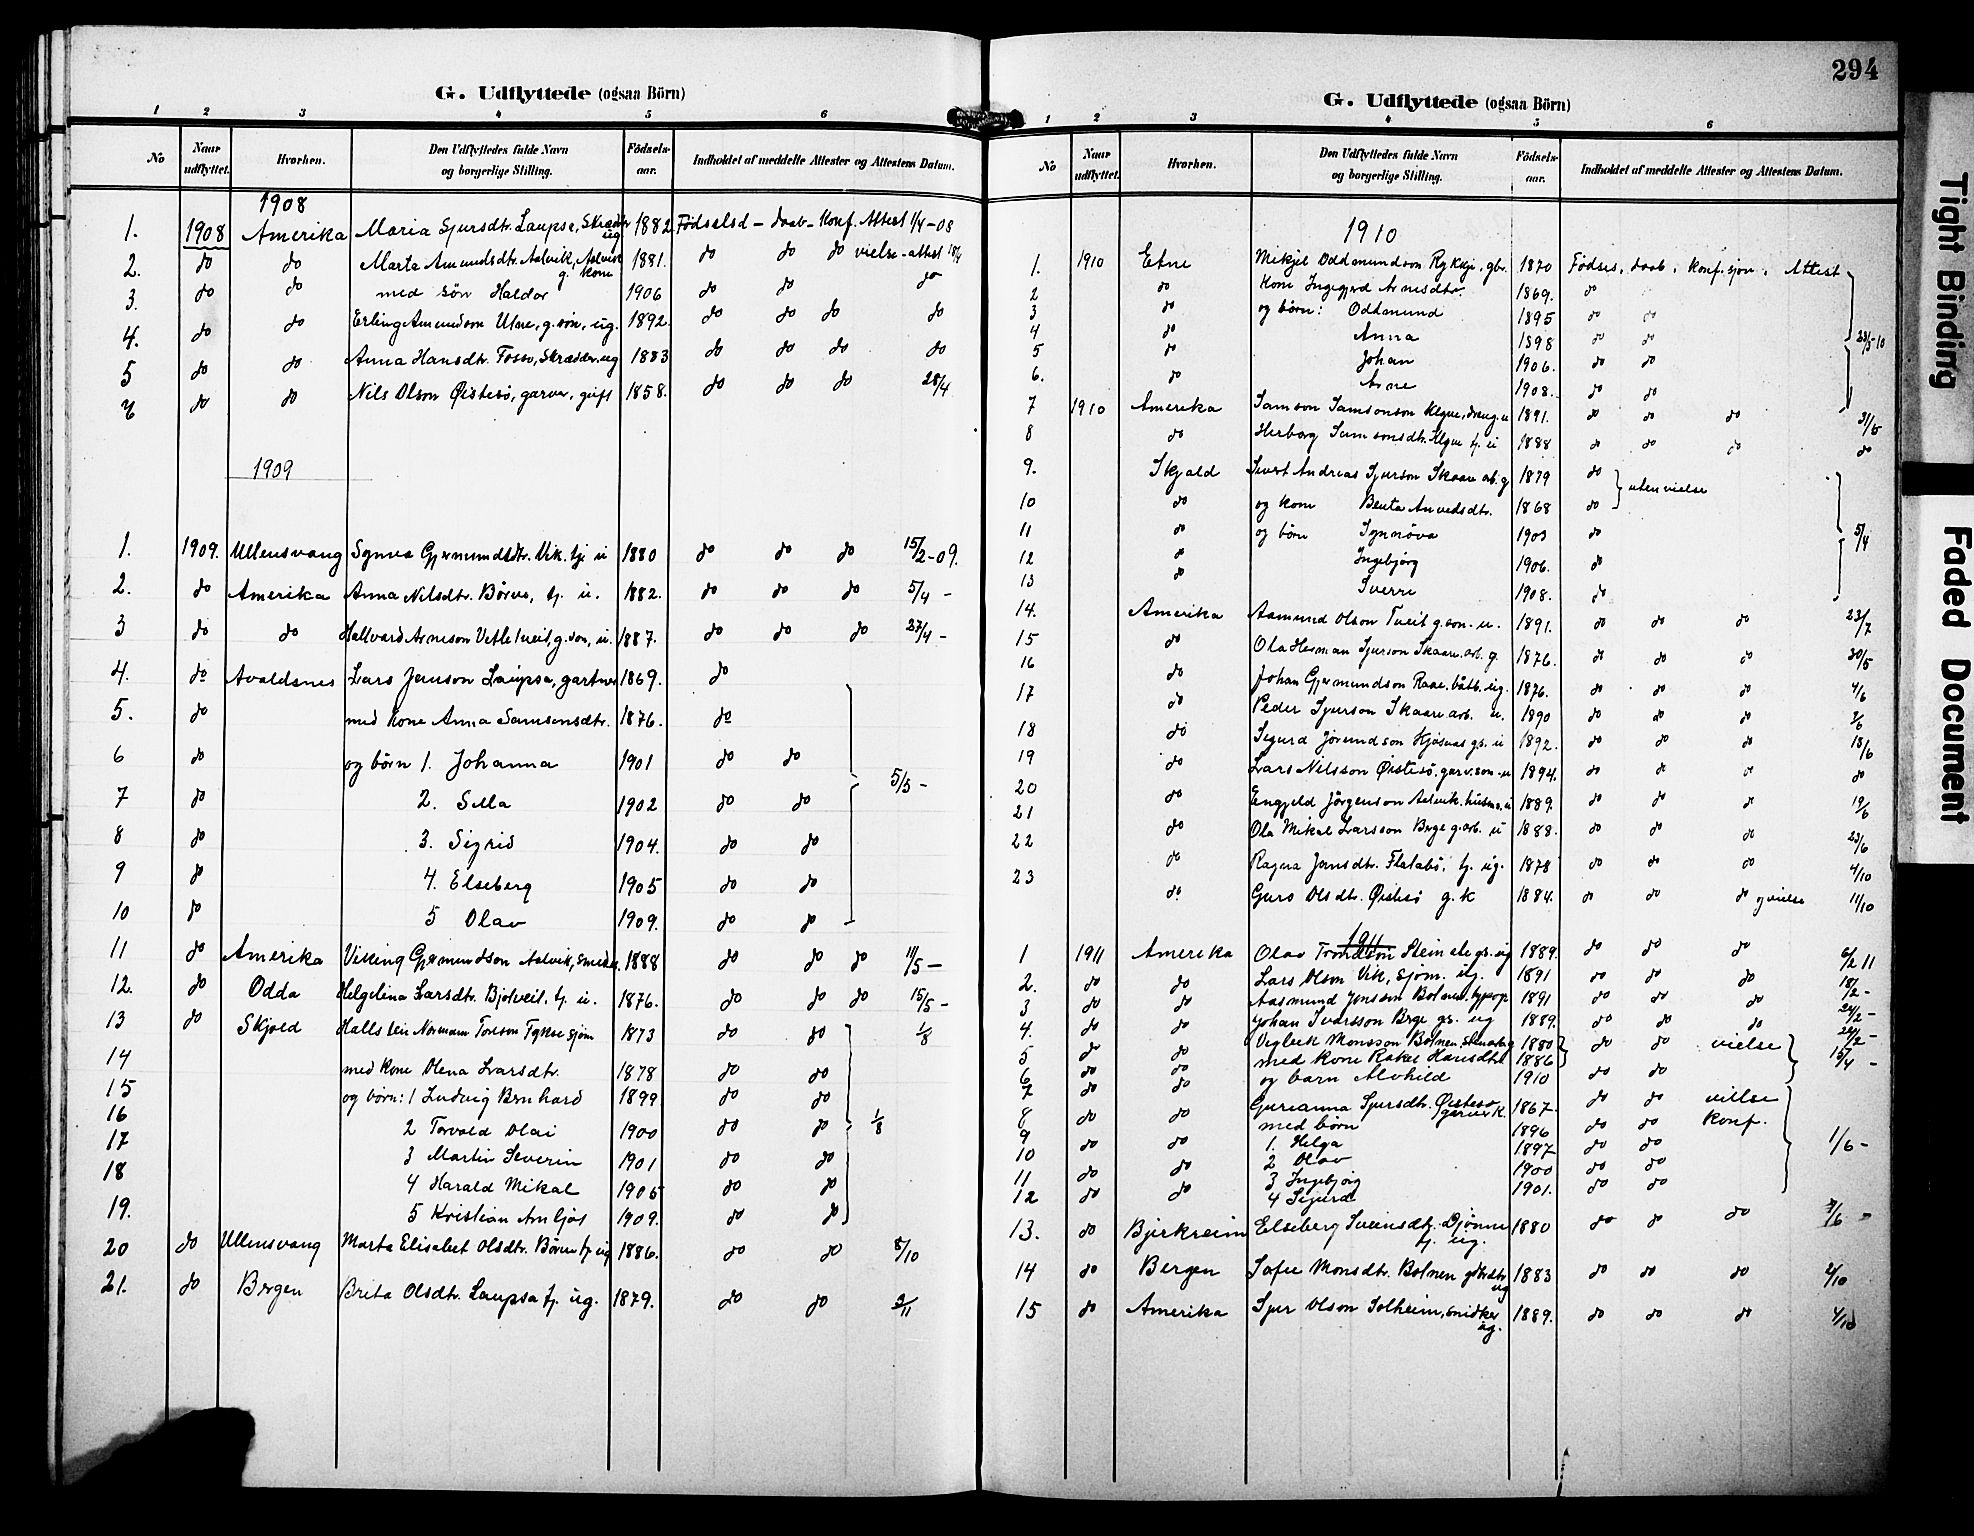 G. Udflyttede (ogsaa Börn)
1 2 3 4 5 6
No Naar udflyttet. Hvorhen. Den Udflyttedes fulde Navn og borgerlige Stilling. Födsels-aar. Indholdet af meddelte Attester og Attestens Datum.
1908
1. 1908 Amerika Maria Sjursdtr. Laupsa, Skrædder ug. 1882 Fødselsd - daab - Konf. Attest 1/4-08
2. do do Marta Amundsdtr. Aalvik, Aalvik g. kone 1881. do do do vielse-attest 18/4
3. do do med søn Haldor 1906 do do do
4. do do Erling Amundson Utne, g.søn, ug. 1892. do do do do
5 do do Anna Hansdtr. Fosso, Skrædder. ug 1883 do do do do
6 do do Nils Olson Øistesö, garver, gift 1858. do do do 28/4
1909
1. 1909. Ullensvang Synva Gjermundsdtr. Vik. tj. u 1880 do do do 15/2-09.
2. do Amerika Anna Nilsdtr. Börve, tj. u. 1882. do do do 5/4 -
3 do do Hallvard Arneson Vetletveit, g.son, u. 1887. do do do 27/4 -
4. do Avaldsnes Lars Janson Laupsa, gartner 1869. do
5. do med kone Anna Samsonsdtr. 1876. do
6 do og börn 1. Johanna 1901 do do 5/5 -
7 do 2. Silla 1902 do do
8 do 3. Sigrid 1904. do do
9 do 4. Elseberg 1905 do do
10 do 5 Olav 1909. do do
11 do Amerika Viking Gjermundson Aalvik, smed u. 1888 do do do 11/5 -
12. do Odda Helgelena Larsdtr. Bjölveit, tj. u. 1876. do do do 15/5 -
13 do Skjold Halls Norman Toreson Fykse sjöm 1873 do do 1/8
14 med kone Olena Larsdtr. 1878 do do
15 og börn: 1 Ludvig Bernhard 1899 do do
16 2 Torvald Olai 1900 do do 1/8
17 3 Martin Severin 1901 do do
18 4 Harald Mikal 1905 do do
19. 5 Kristian Arn 1909. do do
20 do Ullensvang Marta Elisabet Olsdtr. Börve tj ug 1886. do do 8/10
21. do Bergen Brita Olsdtr. Laupsa tj. ug. 1879. do do 2/11
294
G. Udflyttede (ogsaa Börn)
1 2 3 4 5 6
No Naar udflyttet. Hvorhen. Den Udflyttedes fulde Navn og borgerlige Stilling. Födsels-aar. Indholdet af meddelte Attester og Attestens Datum.
1910
1. 1910 Etne Mikjel Oddmundson Rykkje, gbr. 1870 Fødses, daab, konf.sjon, Attest
2 do Kone Ingegjerd Arnesdtr. 1869. do
3 do og börn: Oddmund 1895 do do
4 do Anna 1898 do do 23/5-10
5 do Johan 1906. do do
6. do Arne 1908. do do
7 1910 Amerika Samson Samsonson Klyve, dreng. u 1891. do do do 31/5
8 do Herborg Samsonsdtr. Klyve tj. u 1888 do do do do
9. Skjold Sivert Andreas Sjurson Skaare arb. g 1879 do
10 do og kone Berita Anvedsdtr. 1868 do uten vielse
11 do og börn Synnöva 1903 do 5/4
12 do Ingebjørg 1906. do
13 do Sverre 1908. do
14. Amerika Aamund Olson Tveit g.son. u. 1891. do do do 23/7
15 do Ola Herman Sjurson Skaare. arb. g. 1876. do do do 30/5
16 do Johan Gjermundson Raae, båtb. ug. 1876. do do do 4/6
17 do Peder Sjurson Skaare arb. u. 1890 do do do 2/6
18 do Sigurd Jörundson Hjösaas gs. u 1892. do do do 18/6
19 do Lars Nilsson Øistesö, garv.son u 1894. do do do do
20 do Engjeld Jörgenson Aalvik, husm. u 1889. do do do 19/6
21 do Ola Mikal Larsson Berge g.arb. u 1888. do do do 23/6
22 do Ragna Jonsdtr. Flatabö, tj. ug. 1878 do do do 4/10
23 do Guro Olsdtr. Øistesö g. k 1884. do do do g vielse 11/10
1911
1 1911 Amerika Olav Trondson Steinste gs. ug 1889. do do do 6/2 11
2. do do Lars Olson Vik, Sjöm. ug. 1891 do do do 18/2 -
3 do do Aasmund Jonsson Botnen. 1891 do do do 24/2 -
4. do do Johan Ivarsson Berge gs. ug 1889. do do do 26/2 -
5 do do Vigleik Monsson Botnen. 1880 do do vielse 15/4 -
6 do do med kone Rakel Hansdtr. 1886
7 do do og barn Alvhild 1910 do do
8 do do Gurianna Sjursdtr. Øistesö garver k. 1867. do do vielse
med börn
9 do do 1. Helga 1896 do do konf.
10 do do 2 Olav 1897 do do 1/6 -
11 do do 3 Ingebjörg 1900 do do
12 do do 4 Sigurd 1901. do do
13. do Bjerkreim Elseberg Sveinsdtr. Djönne tj. ug. 1880 do do do 7/6 -
14 do Bergen Sofie Monsdtr. Botnen ug 1883 do do do 2/10
15 do Amerika Sjur Olson Solheim, snidker ug. 1889. do do do 4/10
Tight Binding
Faded Document